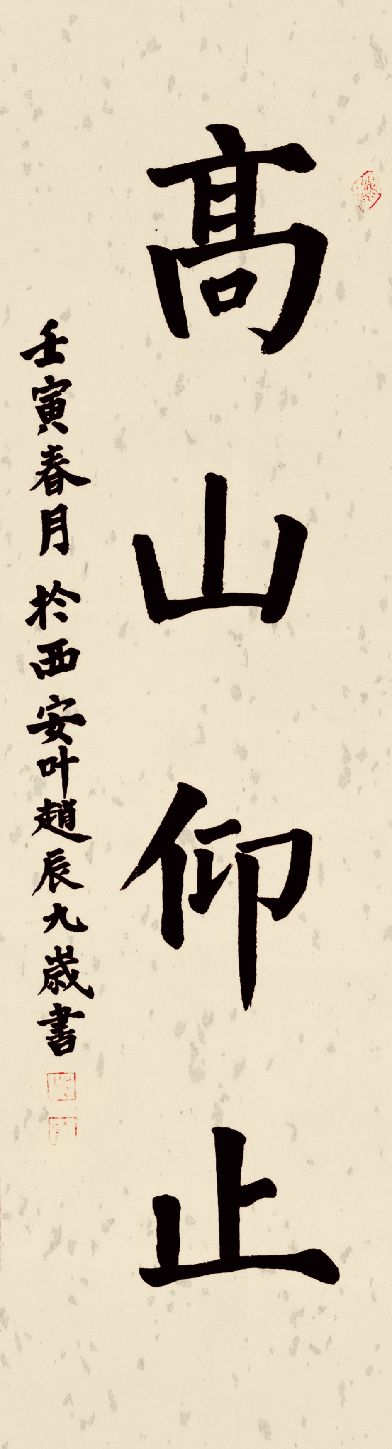 髙山仰止
壬寅春月於西安叶趙辰九歲書